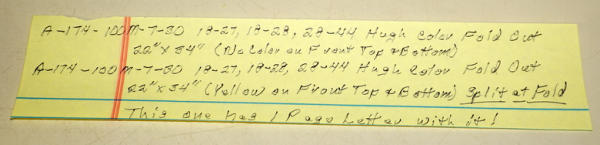 A-174-100M-7-30 18-27, 18-28, 28-44 Hugh Color Fold Out
22" x 34" (No Color on Front Top & Bottom)
A-174-100M-7-30 18-27, 18-28, 28-44 Hugh Color Fold Out
22" x 34" (Yellow on Front Top & Bottom) Split at Fold
This one has 1 Page Letter with it!